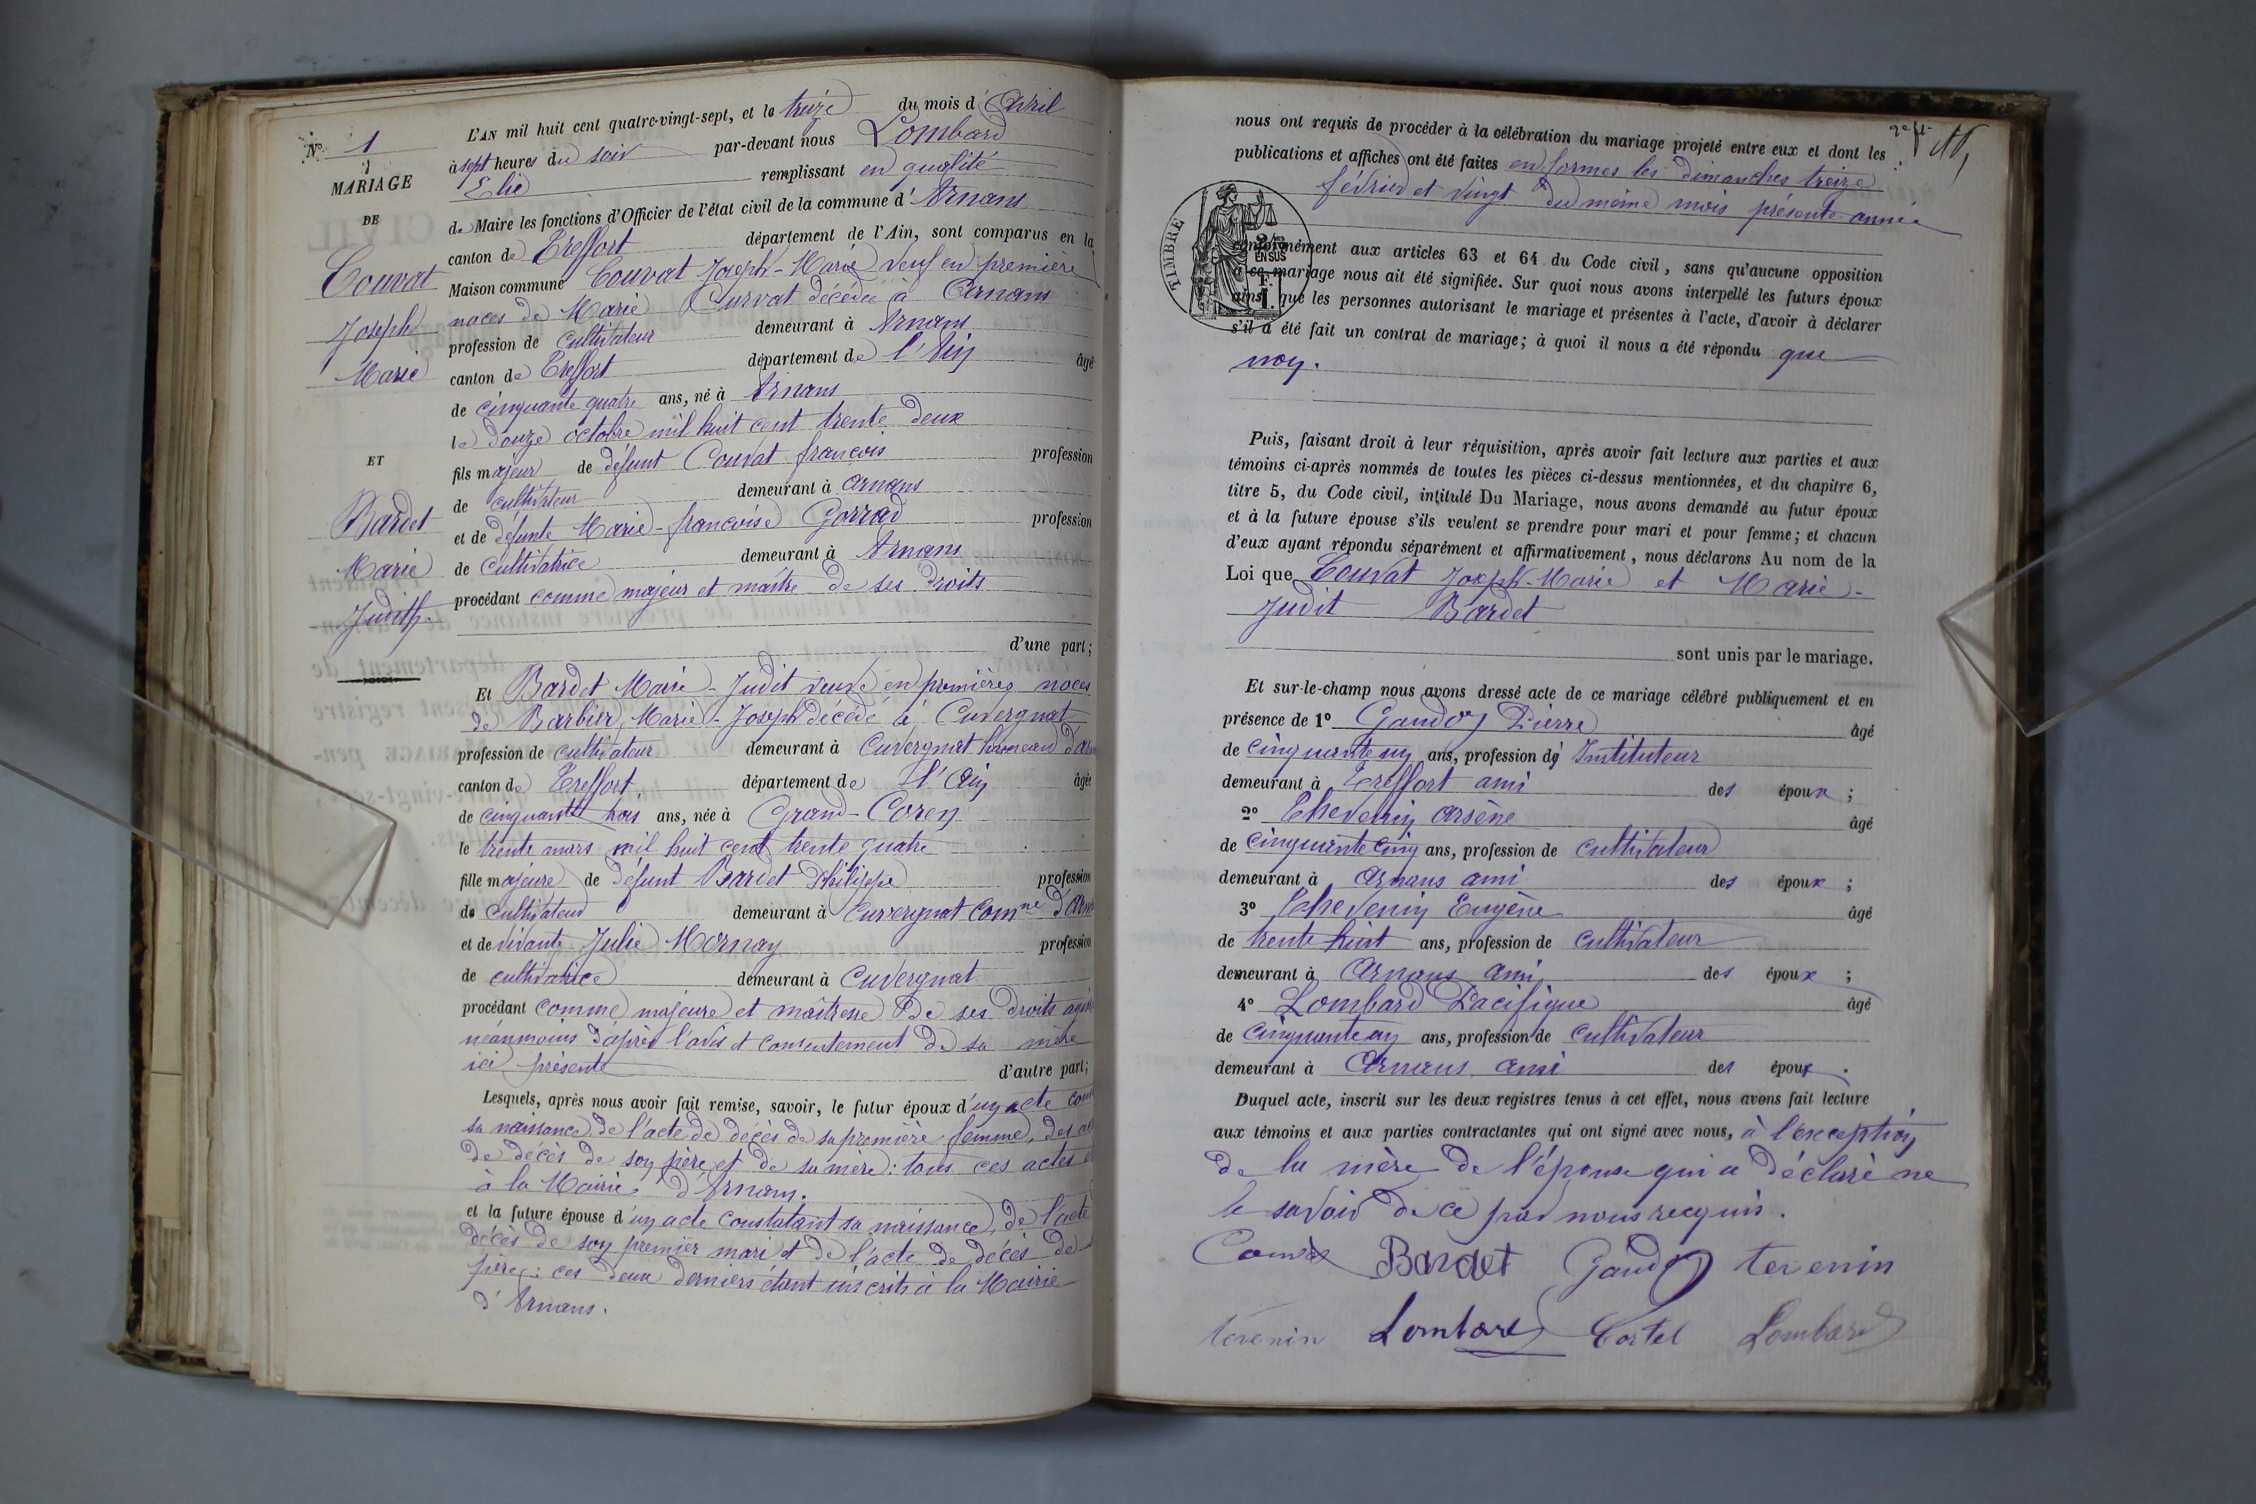 N° 1
MARIAGE
DE
Couvat
Joseph
Marie
ET
Bardet
Marie
Judith.
L'AN mil huit cent quatre-vingt-sept, et le treize du mois d'Avril
à sept heures du soir par-devant nous Lombard
Elie remplissant en qualité
de Maire les fonctions d'Officier de l'état civil de la commune d'Arnans
canton de Treffort département de l'Ain, sont comparus en la
Maison commune Couvat Joseph-Marie veuf en première
noces de Marie Curvat décédée à Arnans
profession de cultivateur demeurant à Arnans
canton de Treffort département de l'Ain âgé
de cinquante quatre ans, né à Arnans
le douze octobre mil huit cent trente deux
fils majeur de défunt Couvat françois profession
de cultivateur demeurant à arnans
et de défunte Marie-françoise Gorrad profession
de cultivatrice demeurant à Arnans
procédant comme majeur et maître de ses droits
d'une part;
Et Bardet Marie-Judit veuve en premières noces
de Barbier, Marie-Joseph décédé à Cuvergnat
profession de cultivateur demeurant à Cuvergnat hameau d'arn
canton de Treffort département de l'Ain âgée
de cinquante trois ans, née à Grand-Coren
le trente mars mil huit cent trente quatre
fille majeure de défunt Bardet Philippe profession
de cultivateur demeurant à Cuvergnat comne d'arn
et de vivante Julie Mornay profession
de cultivatrice demeurant à Cuvergnat
procédant comme majeure et maîtresse de ses droits
néanmoins d'après l'avis et consentement de sa mère
ici présente d'autre part;
Lesquels, après nous avoir fait remise, savoir, le futur époux d'un acte
sa naissance, de l'acte de décès de sa première femme, des
de décès de son père et de sa mère: tous ces actes
à la Mairie d'Arnans.
et la future épouse d'un acte constatant sa naissance, de l'acte
décès de son premier mari et de l'acte de décès de
père; ces deux derniers étant inscrits à la Mairie
d'Arnans.
nous ont requis de procéder à la célébration du mariage projeté entre eux et dont les
publications et affiches ont été faites en formes les dimanches treize
février et vingt du même mois présente année
TIMBRE
EN SUS
conformément aux articles 63 et 64 du Code civil, sans qu'aucune opposition
à ce mariage nous ait été signifiée. Sur quoi nous avons interpellé les futurs époux
ainsi que les personnes autorisant le mariage et présentes à l'acte, d'avoir à déclarer
s'il a été fait un contrat de mariage; à quoi il nous a été répondu que
non.
Puis, faisant droit à leur réquisition, après avoir fait lecture aux parties et aux
témoins ci-après nommés de toutes les pièces ci-dessus mentionnées, et du chapitre 6,
titre 5, du Code civil, intitulé Du Mariage, nous avons demandé au futur époux
et à la future épouse s'ils veulent se prendre pour mari et pour femme; et chacun
d'eux ayant répondu séparément et affirmativement, nous déclarons Au nom de la
Loi que Couvat Joseph-Marie et Marie-
Judit Bardet
sont unis par le mariage.
Et sur-le-champ nous avons dressé acte de ce mariage célébré publiquement et en
présence de 1° Gandoy Pierre âgé
de cinquante un ans, profession d' Instituteur
demeurant à Treffort ami des époux;
2° Thevenin arsène âgé
de cinquante cinq ans, profession de cultivateur
demeurant à Arnans ami des époux;
3° Thevenin Eugène âgé
de trente huit ans, profession de cultivateur
demeurant à Arnans ami des époux;
4° Lombard Pacifique âgé
de cinquante un ans, profession de cultivateur
demeurant à Arnans ami des époux.
Duquel acte, inscrit sur les deux registres tenus à cet effet, nous avons fait lecture
aux témoins et aux parties contractantes qui ont signé avec nous, à l'exception
de la mère de l'épouse qui a déclaré ne
le savoir de ce par nous recquis.
Bardet Gandoy tevenin
tevenin Lombard Cortel Lombard